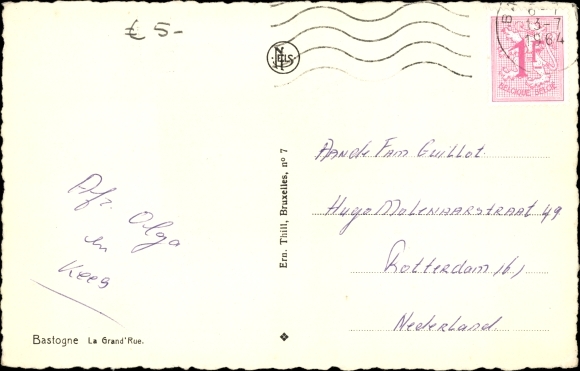 £ 5-
NELS
13-7
1964
1F
BELGIQUE BELGIË
Afz. Olga
en
Kees
Bastogne La Grand'Rue.
Ern. Thill, Bruxelles, nº 7
Aan de Fam Guillot.
Hugo Molenaarstraat 49
Rotterdam 16,
Nederland